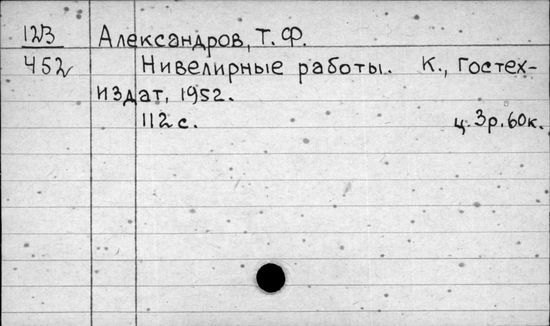 123 Александров, Т. Ф.
452 Нивелирные работы. К., Гостех-
издат, 1952.
112 с. ц. 3р. 60к.